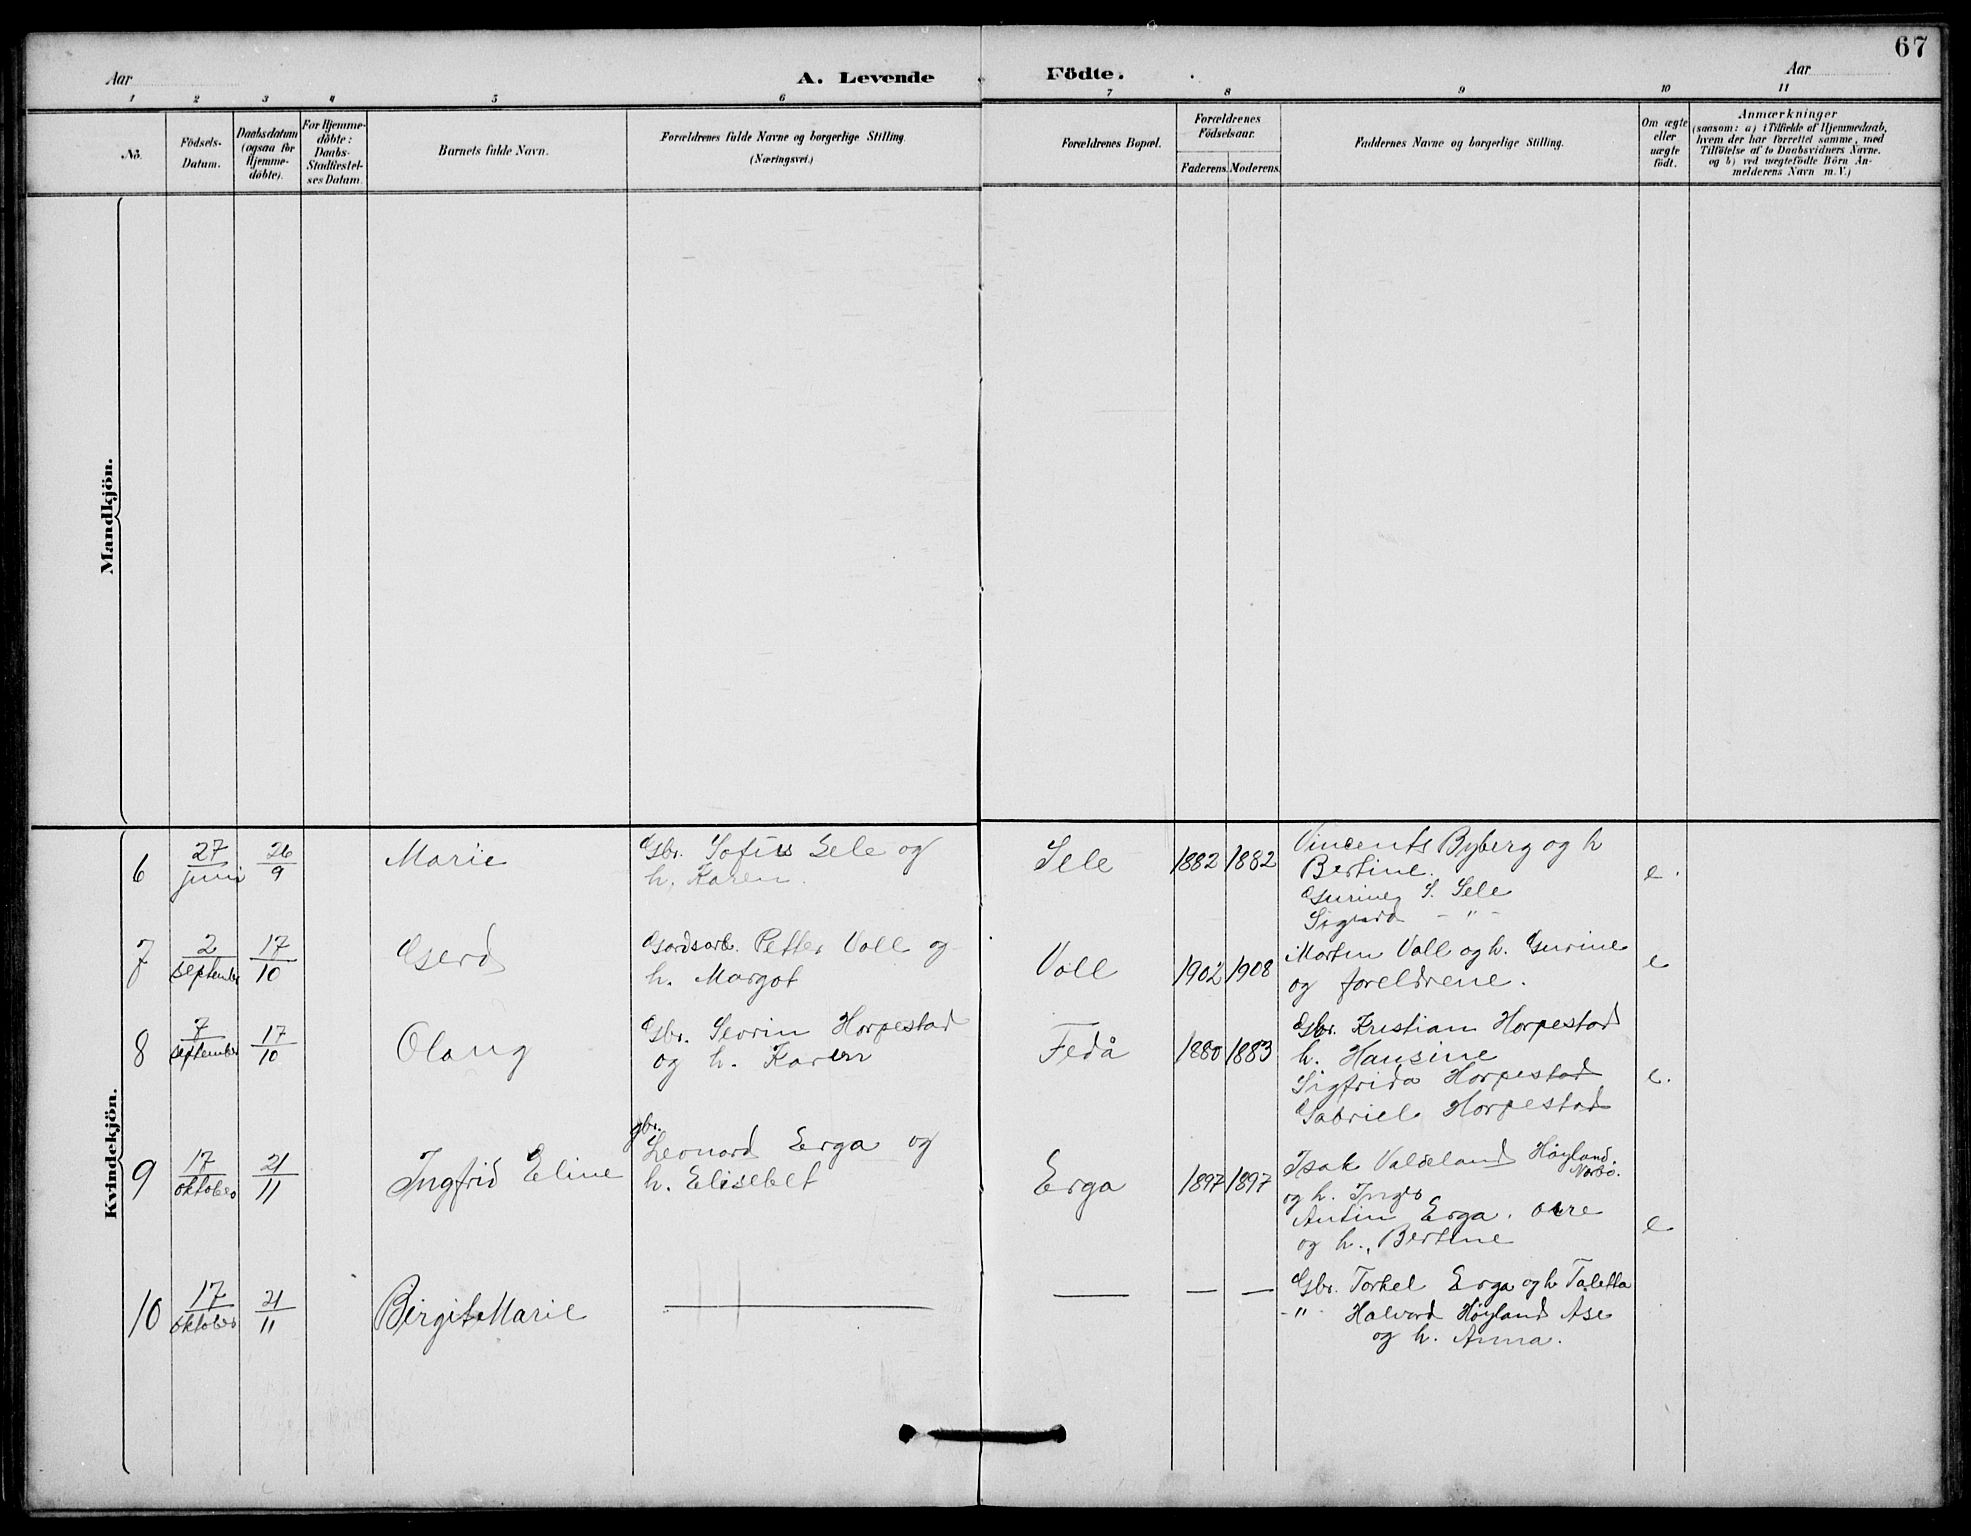 67
Aar
A. Levende Födte.
Aar
1 2 3 4 5 6 7 8 9 10 11
No.
Födsels-Datum.
Daabsdatum (ogsaa for Hjemme-döbte).
For Hjemme-döbte: Daabs-Stadfæstel-ses Datum.
Barnets fulde Navn.
Forældrenes fulde Navne og borgerlige Stilling.
(Næringsvei.)
Forældrenes Bopæl.
Forældrenes Födselsaar.
Faderens. Moderens.
Faddernes Navne og borgerlige Stilling.
Om ægte eller uægte födt.
Anmærkninger
(saasom: a) i Tilfælde af Hjemmedaab,
hvem der har forrettet samme, med
Tilföielse af to Daabsvidners Navne.
og b) ved uægtefödte Börn An-
melderens Navn m. V.)
Mandkjön.
Kvindekjön.
6
27 juni
26/9
Marie
Gbr. Sofus Sele og
h. Karen.
Sele
1882 1882
Vincents Byberg og h
Bertine.
S. Sele
- " -
e.
7
2 september
17/10
Gerd
Gardsarb. Petter Voll og
h. Margot
Voll
1902 1908
Morten Voll og h. Gurine
og foreldrene.
e
8
7 september
17/10
Olaug
Gbr. Sevrin Horpestad
og h. Karen
Fedå
1880 1883
Gbr. Kristian Horpestad
h. Hansine
Sigfrida Horpestad
Gabriel Horpestad
e.
9
17 oktober
21/11
Ingfrid Eline
gbr.
Leonard Erga og
h. Elisebet
Erga
1897 1897
Isak Valdeland Høyland.
og h. Inger
Antin Erga. øvre
og h. Bertine
e
10
17 oktober
21/11
Birgit Marie
—
— — —
Gbr. Torkel Erga og h Taletta
- " - Halvard Høyland Ase
og h. Anna.